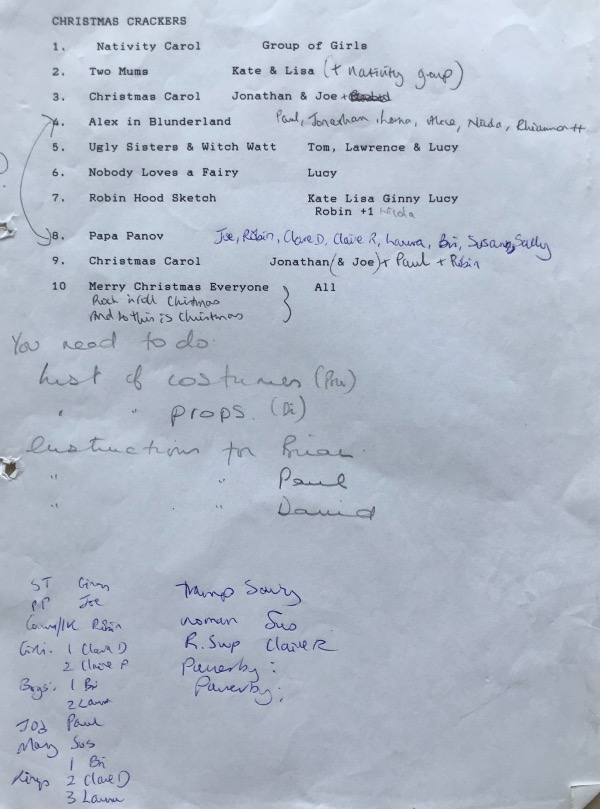 CHRISTMAS CRACKERS
1. Nativity Carol Group of Girls
2. Two Mums Kate & Lisa (+ nativity group)
3. Christmas Carol Jonathan & Joe +
4. Alex in Blunderland Paul, Jonathan, Lorna, Alexe, Nilda, Rhiannon H
5. Ugly Sisters & Witch Watt Tom, Lawrence & Lucy
6. Nobody Loves a Fairy Lucy
7. Robin Hood Sketch Kate Lisa Ginny Lucy
Robin +1 Nilda
8. Papa Panov Joe, Robin, Clare D, Claire R, Laura, Bri, Susan, Sally
9. Christmas Carol Jonathan (& Joe) + Paul + Robin
10 Merry Christmas Everyone All
Rock n roll Christmas
And so this is Christmas
You need to do
List of costumes (Pru)
" " props. (Di)
Instructions for Brian
" " Paul
" " David
ST Ginny
PP Joe
Robin
Girls. 1 Clare D
2 Claire R
Boys. 1 Bri
2 Laura
Jos Paul
Mary Sus
1 Bri
Kings 2 Clare D
3 Laura
Tramp Sally
woman Sus
R. Sup Claire R
Passerby:
Passerby: